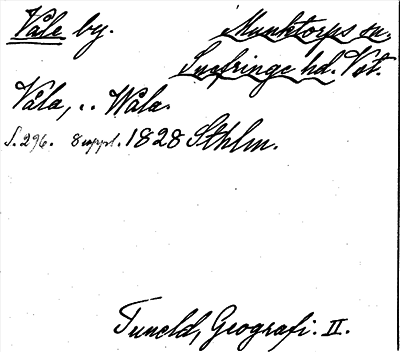 Våle by. Munktorps sn.
Snefringe hd. Vst.
Våla, .. Wåla.
S. 296. 8 uppl. 1828 Sthlm.
Tuneld, Geografi. II.